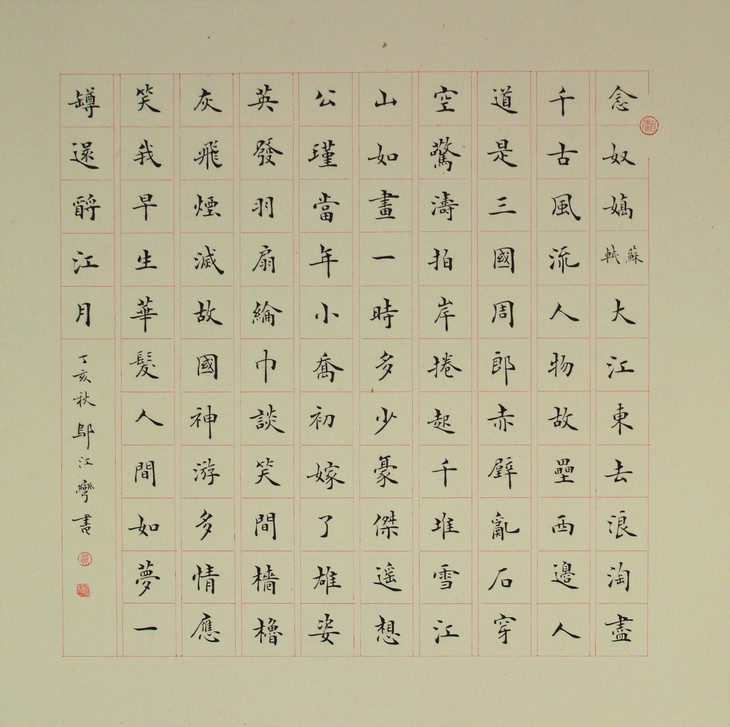 念奴嬌蘇軾大江東去浪淘盡
千古風流人物故壘西邊人
道是三國周郎赤壁亂石穿
空驚濤拍岸捲起千堆雪江
山如畫一時多少豪傑遥想
公瑾當年小喬初嫁了雄姿
英發羽扇綸巾談笑間檣櫓
灰飛煙滅故國神游多情應
笑我早生華髮人間如夢一
罇還酹江月
丁亥秋江書